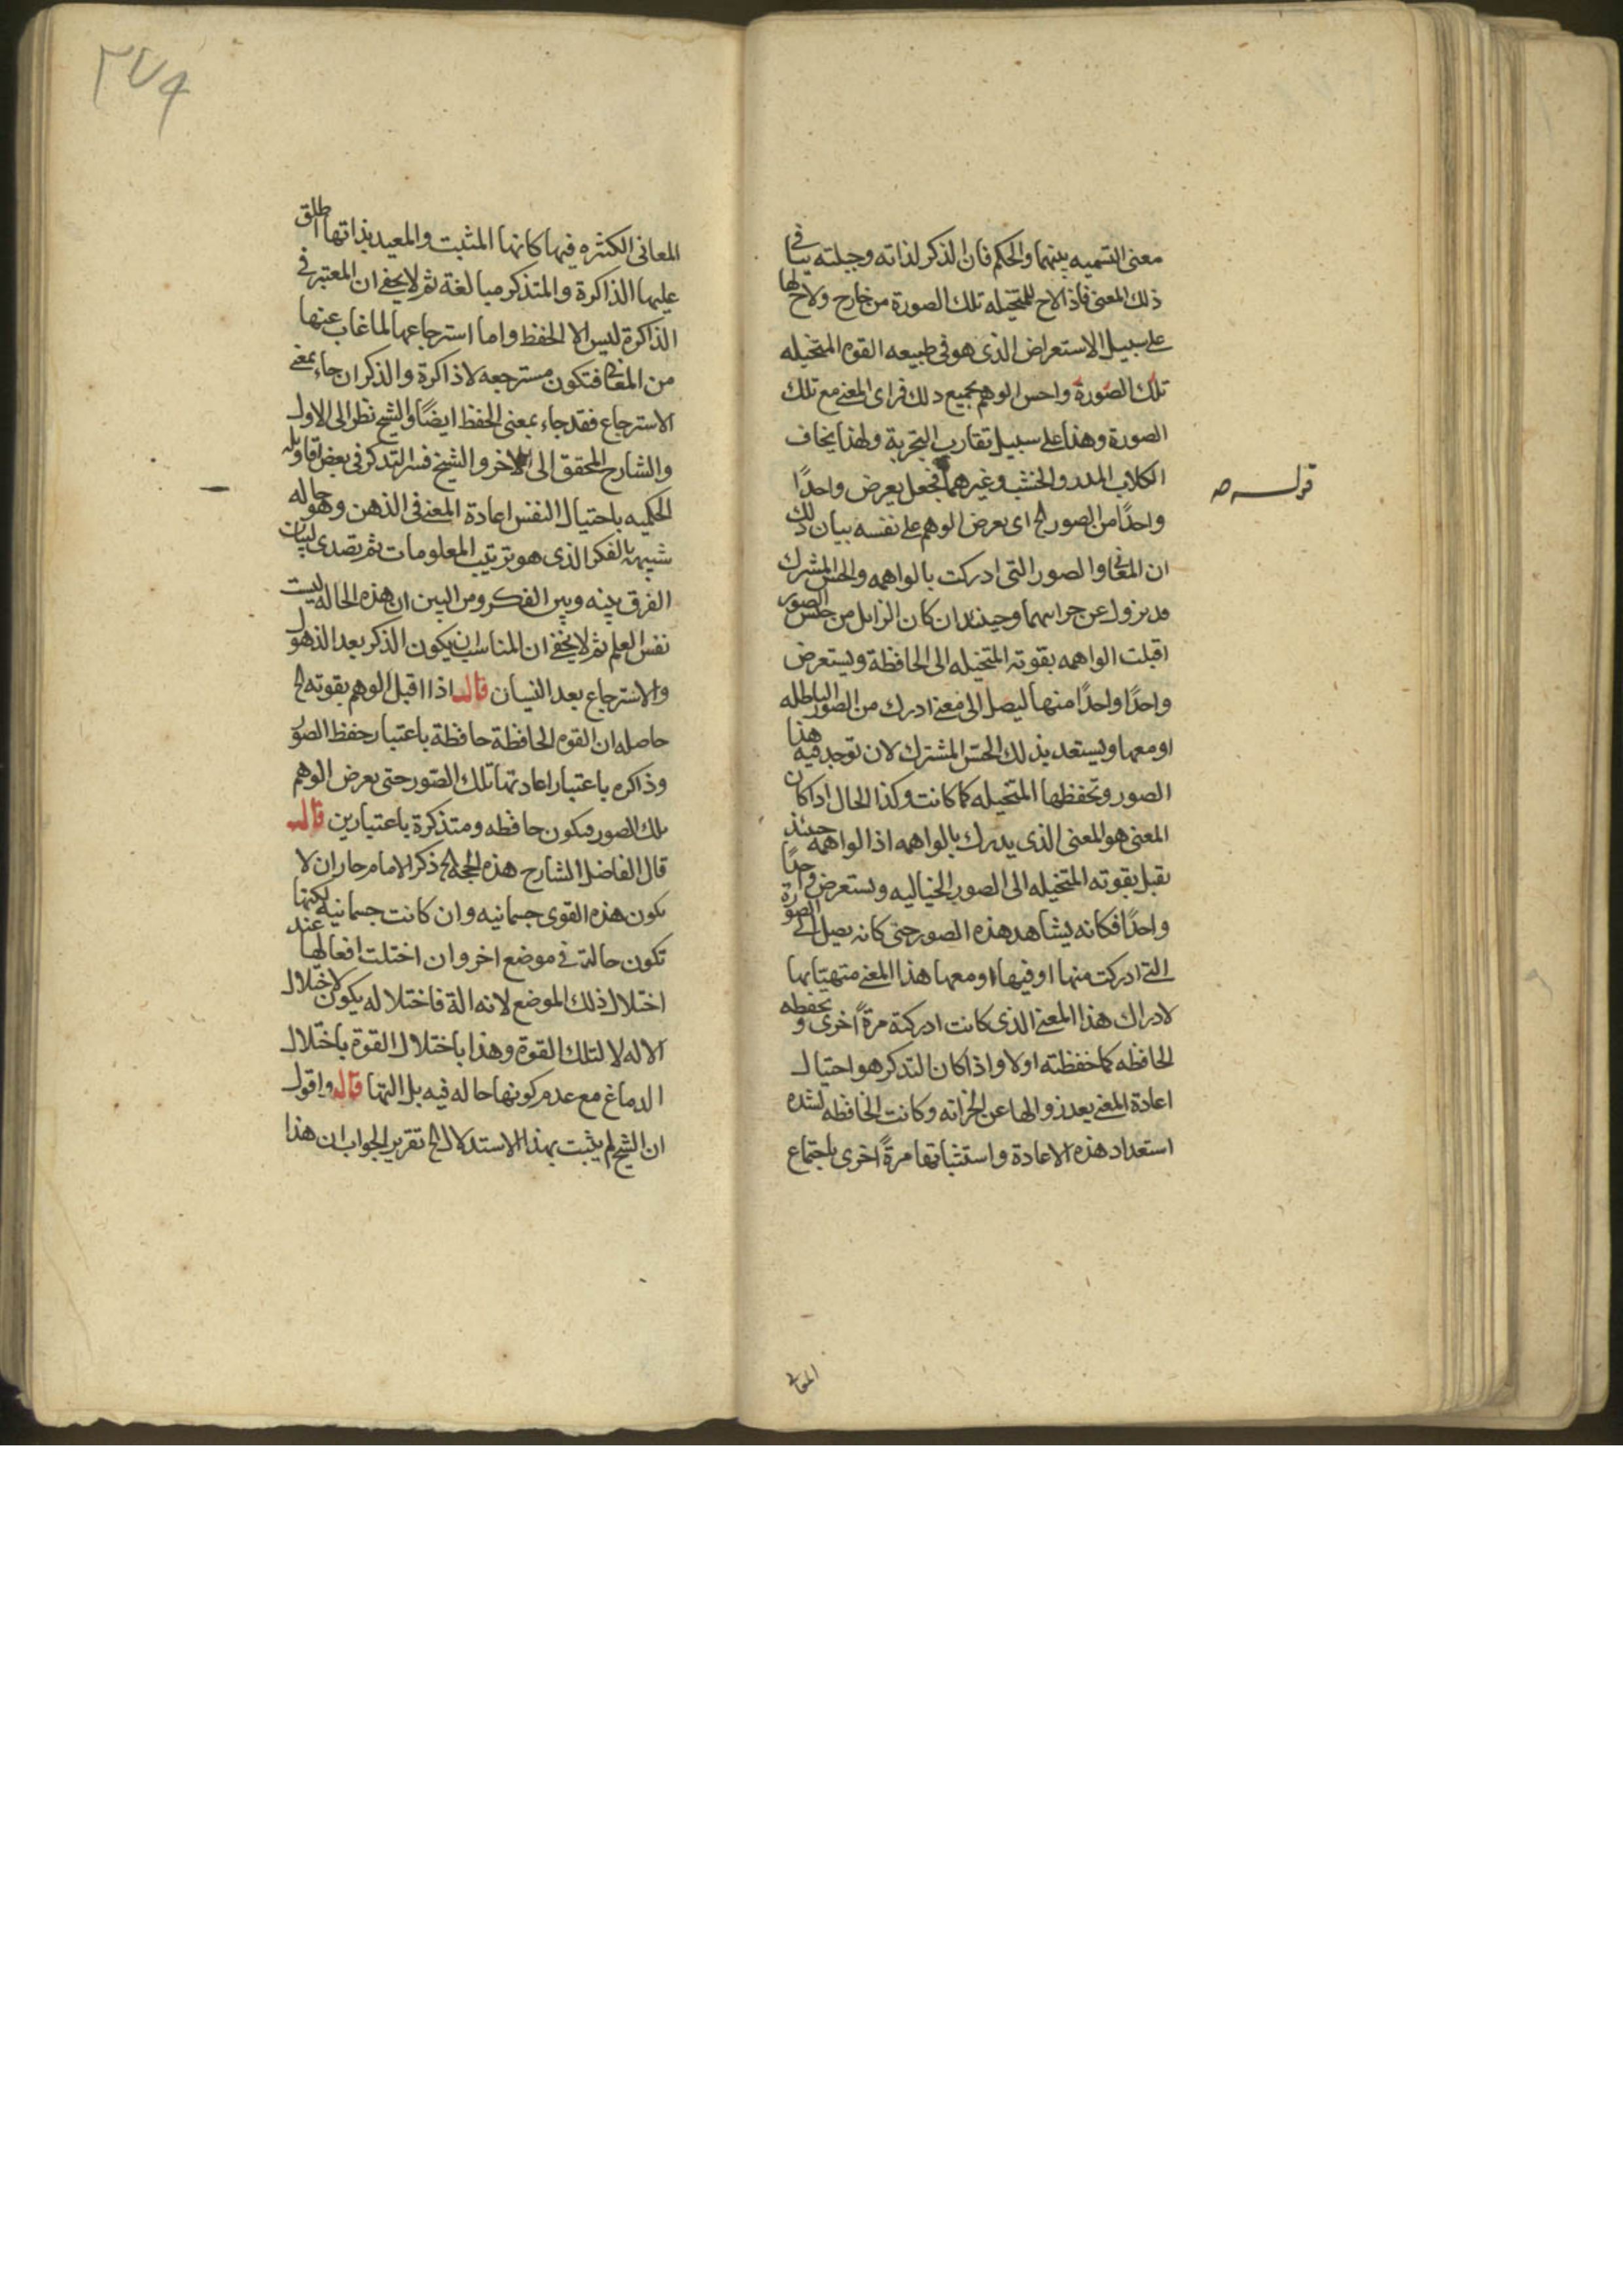 معنى التسميه بينهما والحكم فان الذكر لذاته وجبلته ينافي
ذلك المعنى فاذا لاح للمتخيله تلك الصورة من خارج ولاح لها
على سبيل الاستعراض الذى هو فى طبيعه القوه المتخيله
تلك الصورة واحس الوهم بجميع ذلك فراى المعنى مع تلك
الصورة وهذا على سبيل تقارب التجربة ولهذا يخاف
الكلاب المدر والخشب وغيرهما فجعل يعرض واحدًا
قوله صه
واحدًا من الصور الخ اى يعرض الوهم على نفسه بيان ذلك
ان المعانى والصور التى ادركت بالواهمه والحس المشترك
قد يزول عن حراسهما وحينئذ ان كان الزايل من جنس الصور
اقبلت الواهمه بقوته المتخيله الى الحافظة ويستعرض
واحدًا واحدًا منها ليصل الى معنى ادرك من الصور الباطله
او معها ويستعد بذلك الحس المشترك لان توجد فيه هذا
الصور وتحفظها المتخيله كما كانت وكذا الحال اذا كان
المعنى هو المعنى الذى يدرك بالواهمه اذ الواهمه حينئذ
يقبل بقوته المتخيله الى الصور الخياليه ويستعرض واحدًا
واحدًا فكانه يشاهد هذه الصور حتى كانه يصل الى الصورة
التى ادركت منها او فيها او معها هذا المعنى متهيئا بها
لادراك هذا المعنى الذى كانت ادركته مرةً اخرى وتحفظه
الحافظه كما حفظته اولا واذا كان التذكر هو احتيال
اعادة المعنى بعد زوالها عن الخزانه وكانت الحافظه لشده
استعداد هذه الاعادة واستثباتها مرةً اخرى باجتماع
المعانى
٣٧٩
المعانى الكثيره فيها كانها المثبت والمعيد بذاتها اطلق
عليها الذاكرة والمتذكر مبالغة ثم لا يخفى ان المعتبر فى
الذاكرة ليس الا الحفظ واما استرجاعها لما غاب عنها
من المعانى فتكون مسترجعه لا ذاكرة والذكر ان جاء بمعنى
الاسترجاع فقد جاء بمعنى الحفظ ايضًا والشيخ نظر الى الاول
والشارح المحقق الى الاخر والشيخ فسر التذكر فى بعض اقاويله
الحكميه باحتيال النفس اعادة المعنى فى الذهن وهو حاله
شبيهه بالفكر الذى هو ترتيب المعلومات ثم تصدى لبيان
الفرق بينه وبين الفكر ومن البين ان هذه الحاله ليست
نفس العلم ثم لا يخفى ان المناسب ان يكون الذكر بعد الذهول
والاسترجاع بعد النسيان قال اذا اقبل الوهم بقوته الخ
حاصله ان القوه الحافظة حافظة باعتبار حفظ الصور
وذاكره باعتبار اعادتها تلك الصور حتى يعرض الوهم
تلك الصور فيكون حافظه ومتذكرة باعتبارين قال
قال الفاضل الشارح هذه الحجة الخ ذكر الامام جاز ان لا
يكون هذه القوى جسمانيه وان كانت جسمانيه لكنها
تكون حالة فى موضع اخر وان اختلت افعالها عند
اختلال ذلك الموضع لانه الة فاختلاله يكون لاختلال
الاله لا لتلك القوة وهذا باختلال القوة باختلال
الدماغ مع عدم كونها حاله فيه بل التها قال واقول
ان الشيخ لم يثبت بهذا الاستدلال الخ تقرير الجواب ان هذا